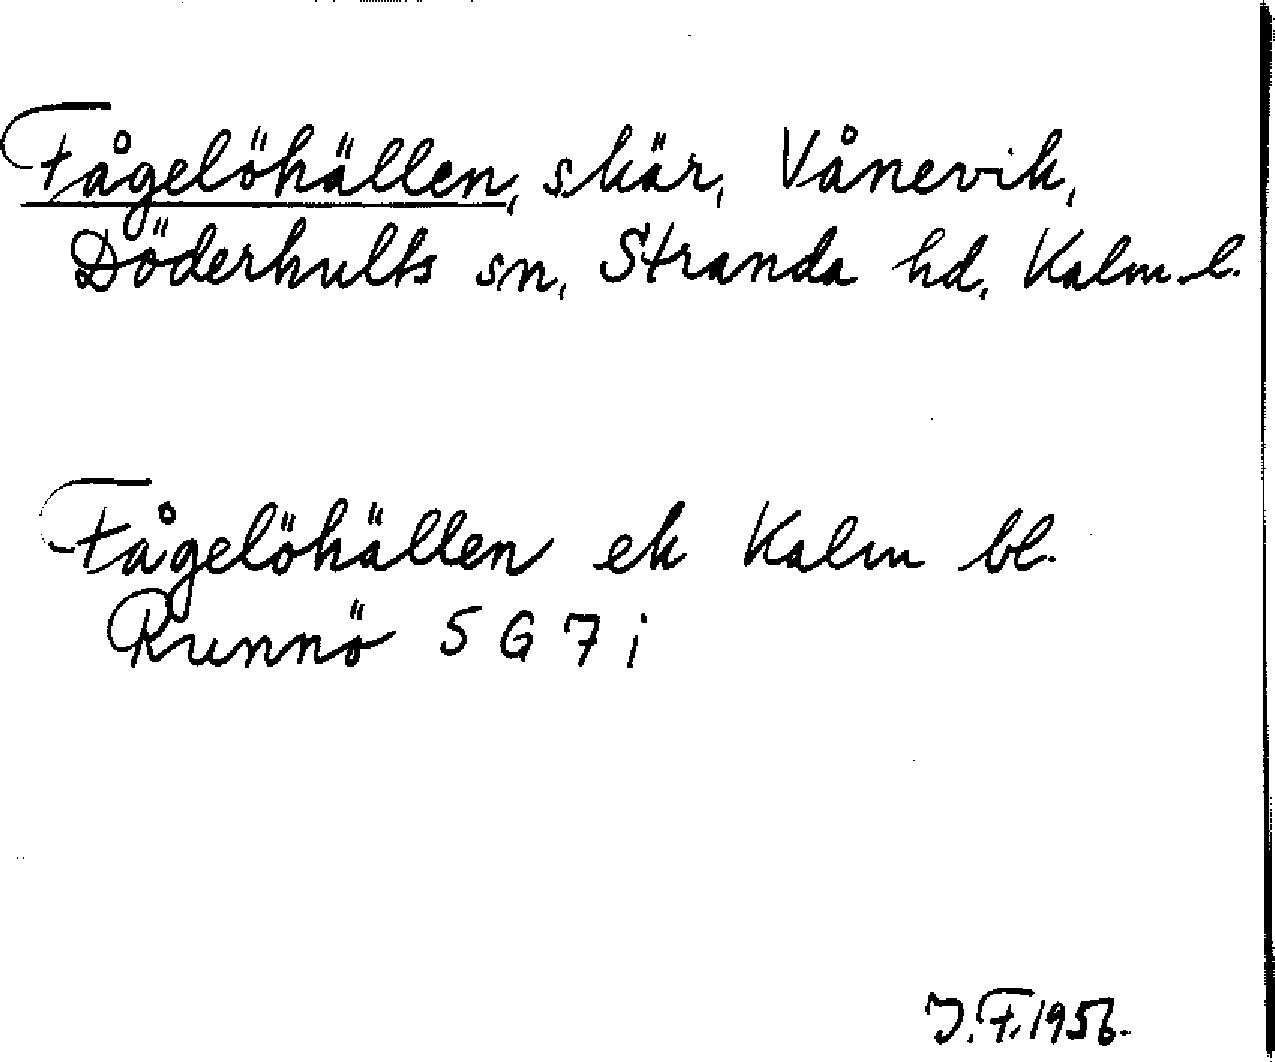 Fågelöhällen, skär, Vånevik,
Döderhults sn, Stranda hd, Kalm. l.
Fågelöhällen ek Kalm bl.
Runnö 5 G 7 i
J.F. 1956.